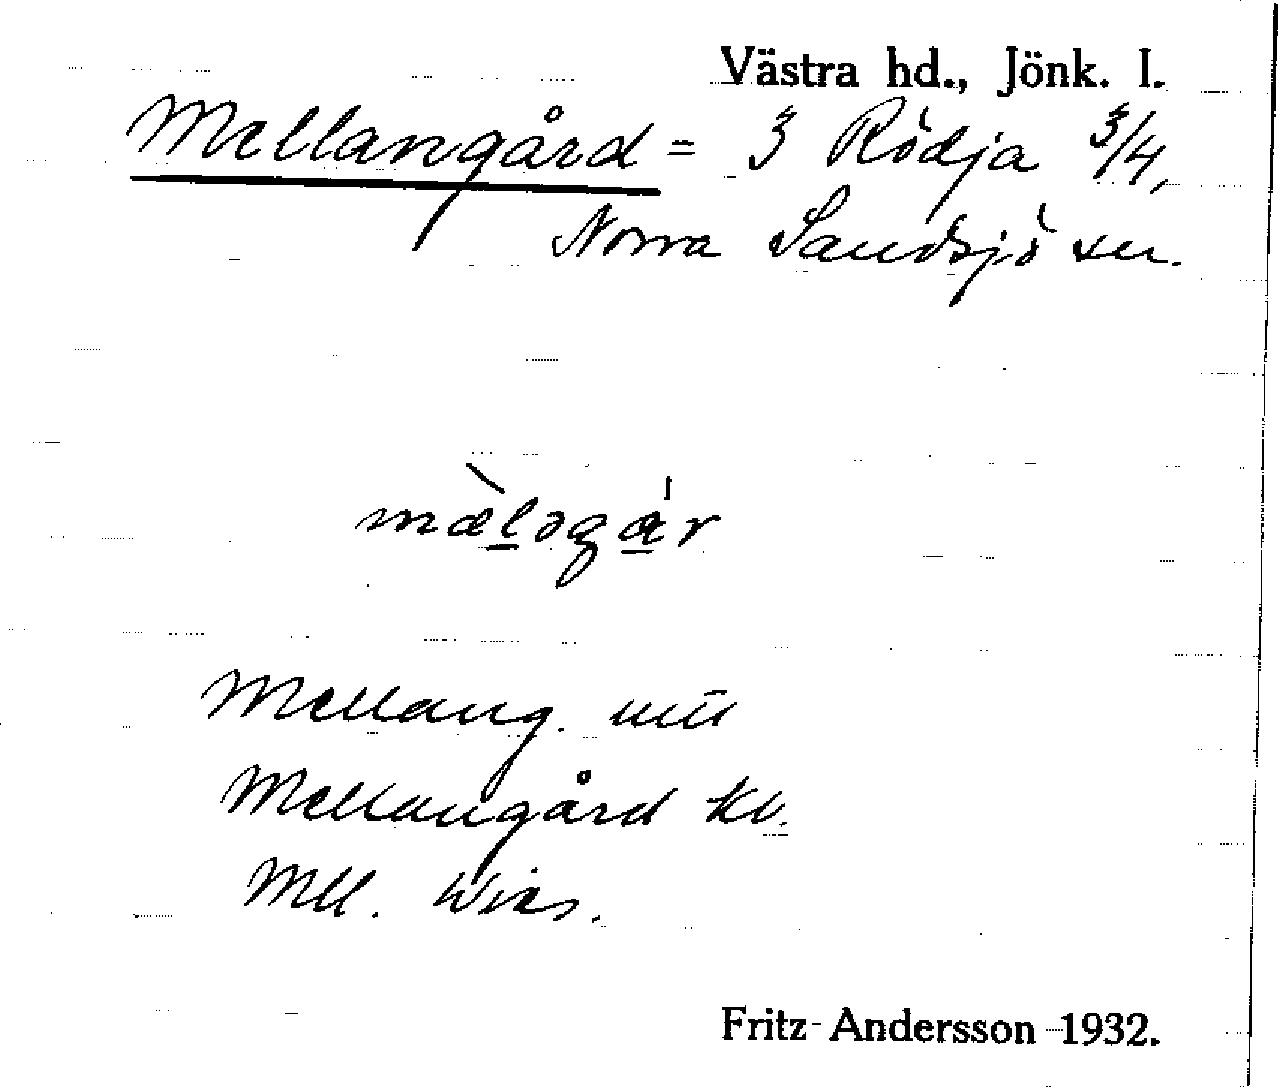 Västra hd., Jönk. l.
Mellangård = 3 Rödja 3/4,
Norra Sandsjö sn.
Mellang.
Mellangård kv.
Mll.
Fritz Andersson 1932.